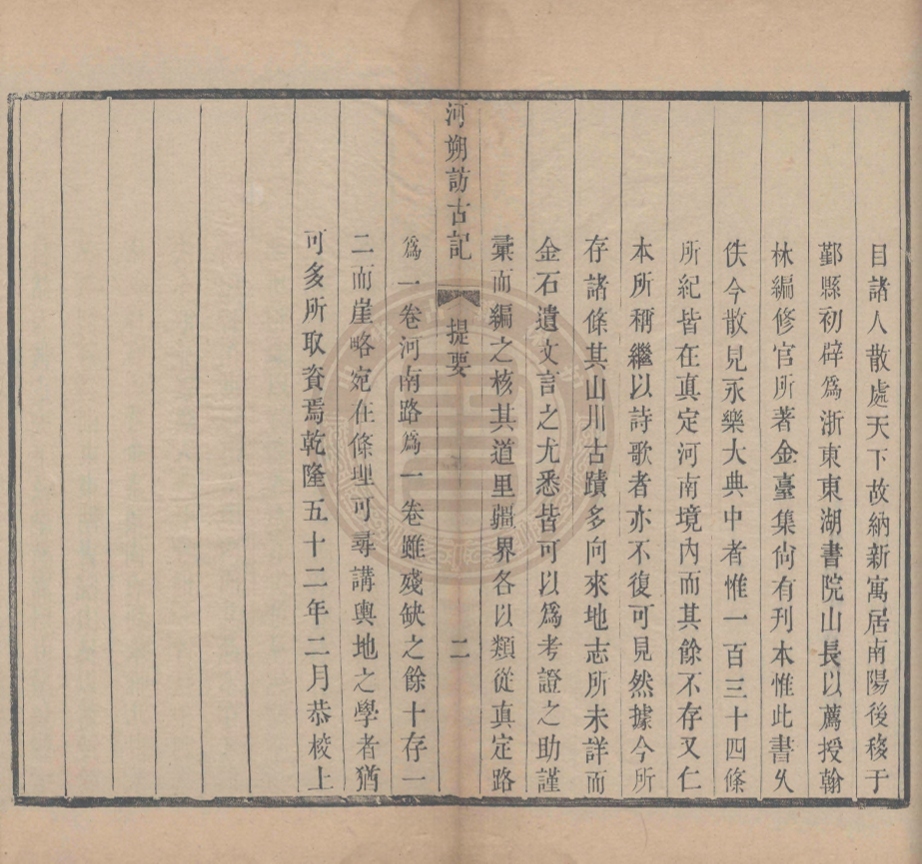 目諸人散處天下故納新寓居南陽後移于
鄞縣初辟爲浙東東湖書院山長以薦授翰
林編修官所著金臺集尙有刊本惟此書久
佚今散見永樂大典中者惟一百三十四條
所紀皆在真定河南境內而其餘不存又仁
本所稱繼以詩歌者亦不復可見然據今所
存諸條其山川古蹟多向來地志所未詳而
金石遺文言之尤悉皆可以爲考證之助謹
彙而編之核其道里疆界各以類從真定路
河朔訪古記 提要 二
爲一卷河南路爲一卷雖殘缺之餘十存一
二而崖略宛在條理可尋講輿地之學者猶
可多所取資焉乾隆五十二年二月恭校上